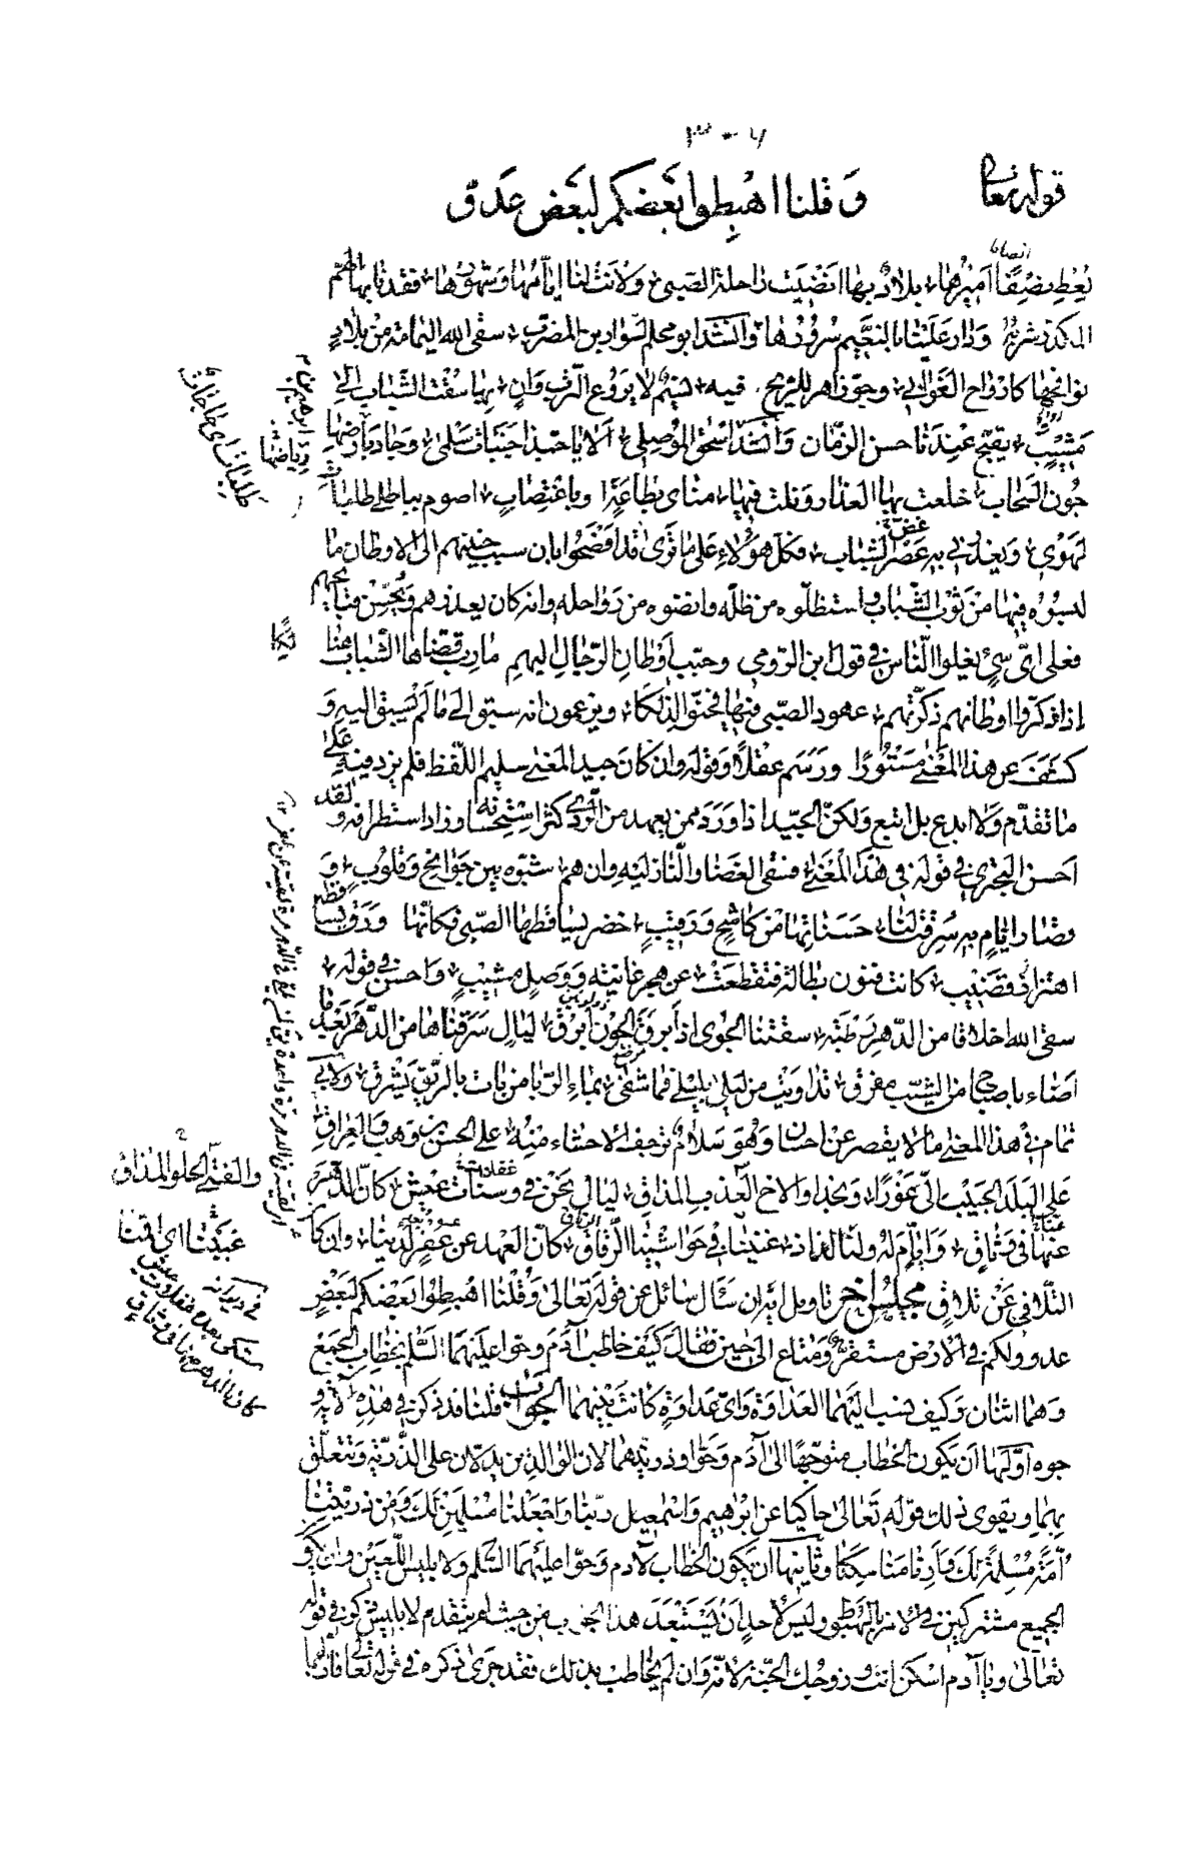 ٣٠٤
قوله تعالى
وقلنا اهبطوا بعضكم لبعض عدو
اميرها بلاد بها انضيت راحلة الصبى ولانت لنا ايامها وشهورها فقدنا بها الهم
المكدر شربه ودار علينا بالنعيم سرورها وانشد ابو محلم لسوار بن المضرب سقى الله اليمامة من بلاد
نوافحها كارواح الغواني وجو زاهر للريح فيه نسيم لا يروع الترب وان بها سقت الشباب الى
مشيب يقبح عندنا حسن الزمان وانشد اسحق الموصلي الا يا حبذا جنبات سلمى وجاد بارضها
جون السحاب خلعت بها العذار ونلت فيها مناى بطاعة او باغتصاب اصوم بباطلي طلبات
لهوى ويعذرني به عصر الشباب فكل هؤلاء على ما ترى قد افضحوا بان سبب حنينهم الى الاوطان ما
لبسوه فيها من ثوب الشباب واستظلوه من ظله وانضوه من رواحله وانه كان يعذرهم ويحسن قبايحهم
فعلى اي شيء يغلوا الناس في قول ابن الرومي وحبب اوطان الرجال اليهم مارب قضاها الشباب هنا
لكا
اذا ذكروا اوطانهم ذكرتهم عهود الصبى فيها فحنوا لذلكا ويزعمون انه سبق الى ما لم يسبق اليه و
كشف عن هذا المعنى مستورا ورسم غفلا وقوله وان كان جيد المعنى سليم اللفظ فلم يزد فيه على
ما تقدم ولا ابدع بل اتبع ولكن الجيد اذا ورد ممن يعهد منه الردى كثر استحسانه وزاد استطرافه ولقد
احسن البحتري في قوله في هذا المعنى فسقى الغضا والنازليه وان هم شبوه بين جوانح وقلوب و
قصار ايام به سرقت لنا حسناتها من كاشح ورقيب خضر تساقطها الصبى فكانها ورق يساقطه
اهتزاز قضيب كانت فنون بطالة فتقطعت عن هجر غانية ووصل مشيب واحسن في قوله
سقى الله اخلاقا من الدهر رطبة سقتنا الجوى اذ ابرق الجون ابرق ليال سرقناها من الدهر بعد ما
اضاء باصباح من الشيب مفرق تداويت من ليلى بليلى فما شفى بماء الربا من بات بالريق يشرق ولابي
تمام في هذا المعنى ما لا يقصر عن احسان وهو سلام ترجف الاحشاء منه على الحسن بن وهب والعراق
على البلد الحبيب الى غورا ونجدا والاخ العذب المذاق ليالي نحن في وسنات عيش كان الدهر
عنها في وثاق وايام له ولنا لذاذ غنينا في حواشيها الرقاق كان العهد عن عفر لدينا وان كا
التلاقي عن تلاق مجلس اخر تاويل اية ان سأل سائل عن قوله تعالى وقلنا اهبطوا بعضكم لبعض
عدو ولكم في الارض مستقر ومتاع الى حين فقال كيف خاطب آدم وحوا عليهما السلم بخطاب الجمع
وهما اثنان وكيف نسب اليهما العداوة واي عداوة كانت بينهما الجواب قلنا قد ذكر في هذه الآية و
جوه اولها ان يكون الخطاب متوجها الى آدم وحوا وذريتهما لان الوالدين يدلان على الذرية وتتعلق
بهما ويقوى ذلك قوله تعالى حاكيا عن ابراهيم واسمعيل ربنا واجعلنا مسلمين لك ومن ذريتنا
امة مسلمة لك وارنا مناسكنا وثانيها ان يكون الخطاب لآدم وحوا عليهما السلم ولابليس اللعين وان يكون
الجميع مشتركين في الامر بالهبوط وليس لاحد ان يستبعد هذا الجواب من حيث لم يتقدم لابليس ذكر في قوله
تعالى ويا آدم اسكن انت وزوجك الجنة لانه وان لم يخاطب بذلك فقد جرى ذكره في قوله تعالى فازلهما
والفتى الحلو المذاق